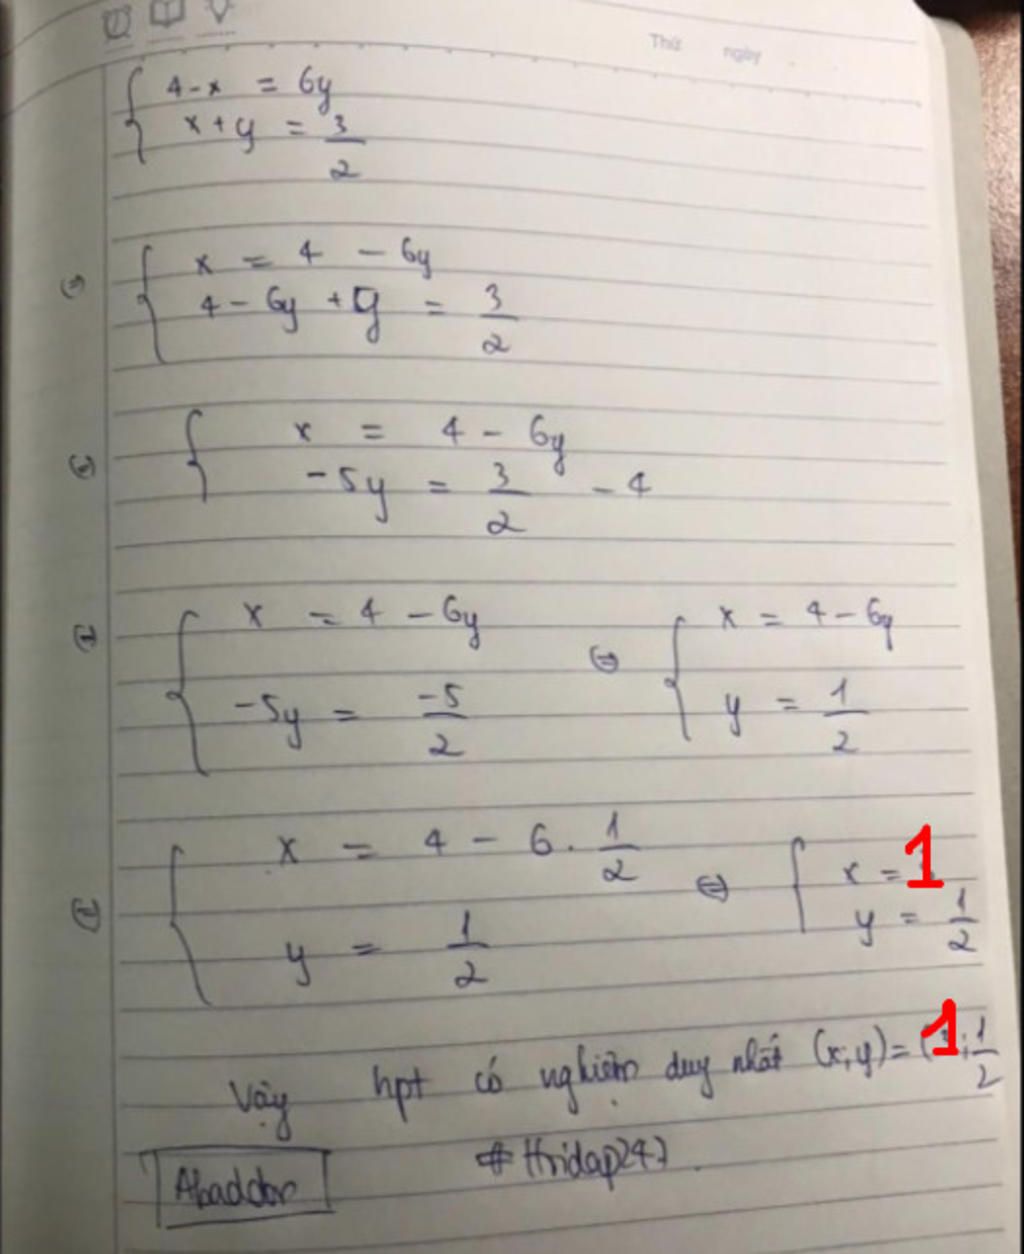 Thứ ngày
4 - x = 6y
x + y = 3/2
⇔ x = 4 - 6y
4 - 6y + y = 3/2
⇔ x = 4 - 6y
-5y = 3/2 - 4
⇔ x = 4 - 6y ⇔ x = 4 - 6y
-5y = -5/2 y = 1/2
⇔ x = 4 - 6 . 1/2 ⇔ x = 1
y = 1/2 y = 1/2
Vậy hpt có nghiệm duy nhất (x;y) = (1; 1/2
Abaddon # Hoidap247.